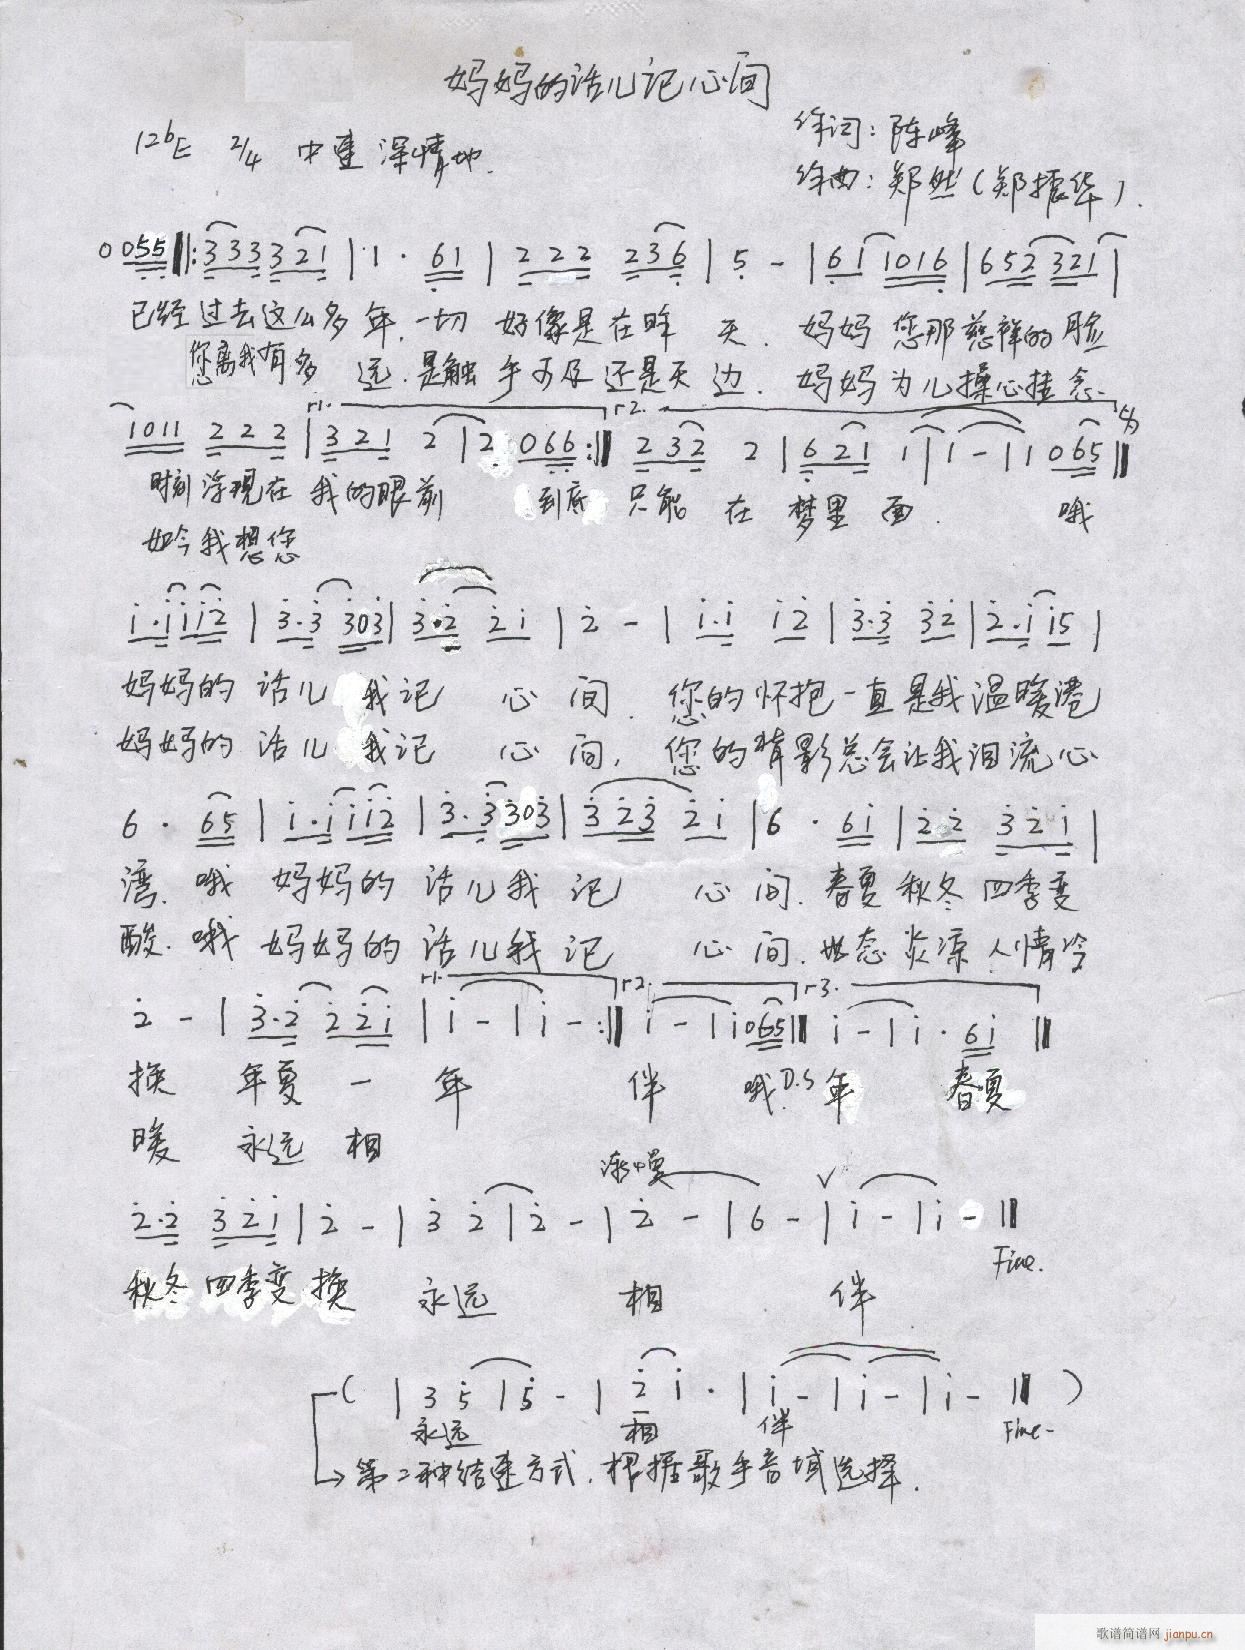 妈妈的话儿记心间
1=♭E 2/4 中速 深情地.
作词：陈峰
作曲：郑然（郑振华）.
0 055 ‖: 333 321 | 1 · 61 | 222 236 | 5 - | 61 1016 | 652 321 |
已经过去这么多年.一切 好像是在昨 天. 妈妈 您那慈祥的脸
您离我有多 远.是触 手可及还是天 边. 妈妈为儿操心挂念.
1011 222 | 321 2 | 2 066 :‖ 232 2 | 621 1 | 1 - | 1 065 ‖
时刻浮现在 我的眼前 到底 只能 在 梦里 面. 哦
如今我想您
i·iiii2 | 3·3 303 | 3·2 2i | 2 - | i·i i2 | 3·3 32 | 2·i i5 |
妈妈的 话儿 我记 心 间. 您的怀抱一直是我温暖港
妈妈的 话儿 我记 心 间, 您的背影总会让我泪流心
6 · 65 | i·iiii2 | 3·3303 | 323 2i | 6 · 6i | 22 32i |
湾. 哦 妈妈的 话儿我 记 心 间. 春夏 秋冬 四季变
酸. 哦 妈妈的 话儿我 记 心 间. 世态 炎凉 人情冷
2 - | 3·2 22i | i - | i - :‖ i - | i 065 ‖ i - | i · 6i ‖
换 年夏 一 年 伴 哦 D.S 年 春夏
暖 永远 相
渐慢
2·2 32i | 2 - | 3 2 | 2 - | 2 - | 6 - | i - | i - ‖
Fine.
秋冬 四季变 换 永 远 相 伴
( | 3 5 | 5 - | 2 i · | i - | i - | i - ‖ )
永远 相 伴 Fine.
第二种结速方式.根据歌手音域选择.
歌谱简谱网 jianpu.cn